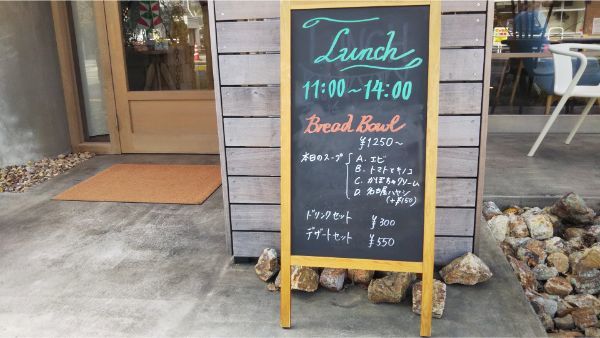 Lunch
11:00～14:00
Bread Bowl
¥1250～
本日のスープ A. エビ
B. トマトとキノコ
C. かぼちゃクリーム
D. 名古屋ハヤシ
(+¥150)
ドリンクセット ¥300
デザートセット ¥550